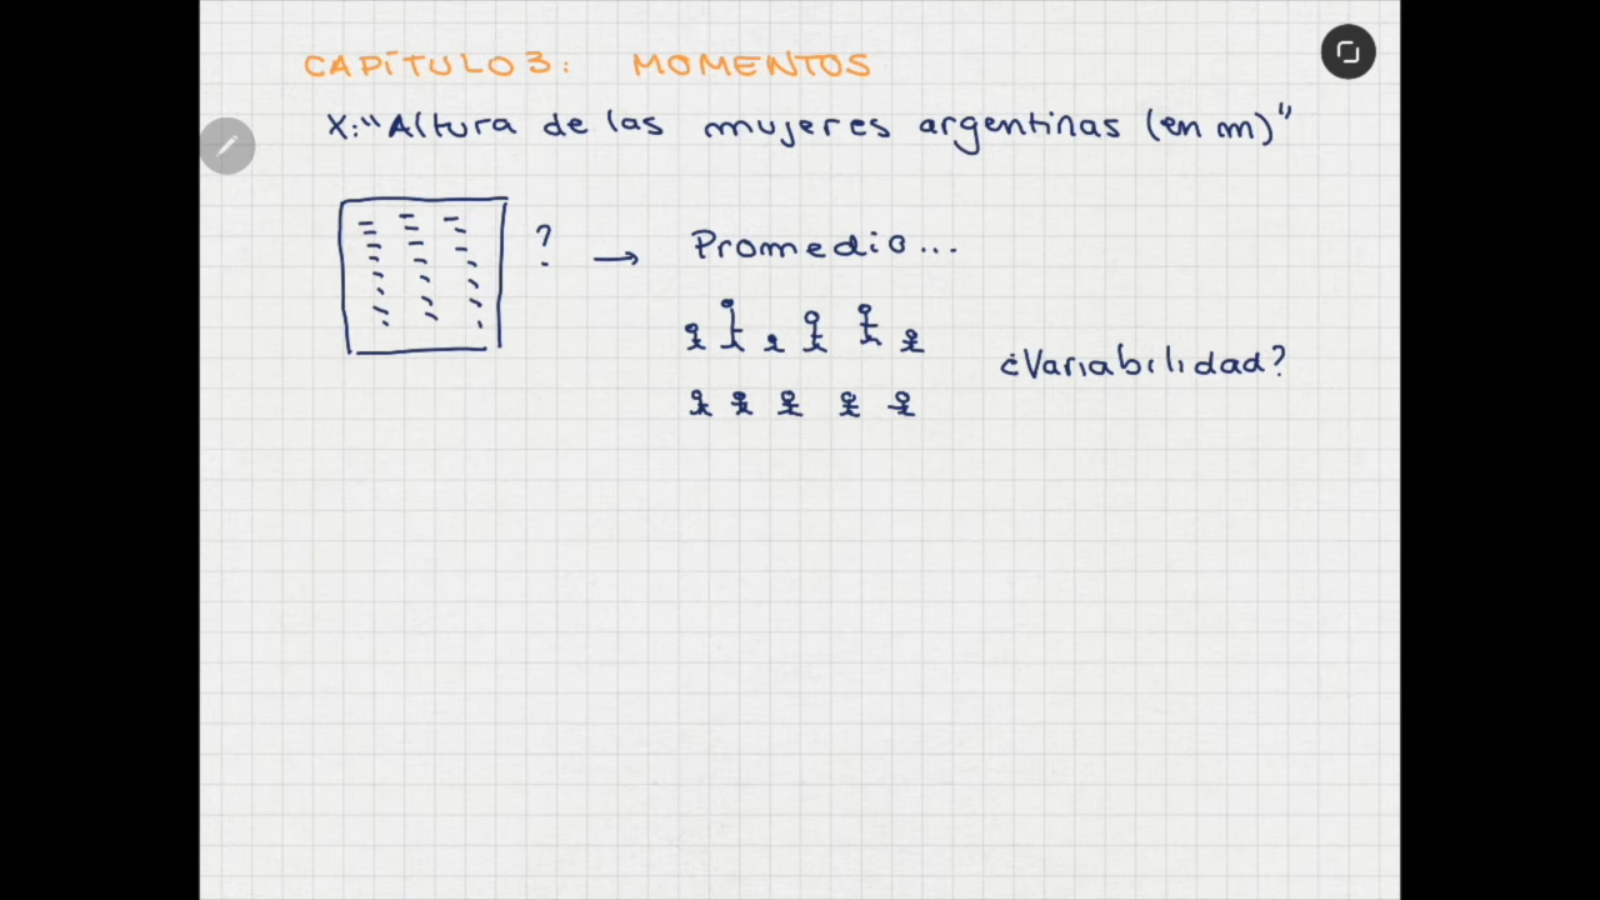 CAPÍTULO 3: MOMENTOS
X: "Altura de las mujeres argentinas (en m)"
? → Promedio...
¿Variabilidad?